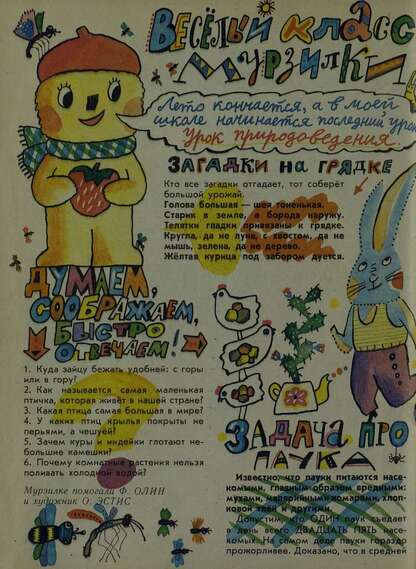 ВЕСЁЛЫЙ КЛАСС
МУРЗИЛКИ
Лето кончается, а в моей
школе начинается последний урок
Урок природоведения.
ЗАГАДКИ НА ГРЯДКЕ
Кто все загадки отгадает, тот соберёт
большой урожай.
Голова большая — шея тоненькая.
Старик в земле, а борода наружу.
Телятки гладки привязаны к грядке.
Кругла, да не луна, с хвостом, да не
мышь, зелена, да не дерево.
Жёлтая курица под забором дуется.
ДУМАЕМ,
СООБРАЖАЕМ,
БЫСТРО
ОТВЕЧАЕМ!
1. Куда зайцу бежать удобней: с горы
или в гору?
2. Как называется самая маленькая
птичка, которая живёт в нашей стране?
3. Какая птица самая большая в мире?
4. У каких птиц крылья покрыты не
перьями, а чешуёй?
5. Зачем куры и индейки глотают не-
большие камешки?
6. Почему комнатные растения нельзя
поливать холодной водой?
Мурзилке помогали Ф. ОЛИН
и художник О. ЭСТИС
ЗАДАЧА ПРО
ПАУКА
Известно, что пауки питаются насе-
комыми, главным образом вредными:
мухами, малярийными комарами, хлоп-
ковой тлёй и другими.
Допустим, что ОДИН паук съедает
в день всего ДВАДЦАТЬ ПЯТЬ насе-
комых. На самом деле пауки гораздо
прожорливее. Доказано, что в средней